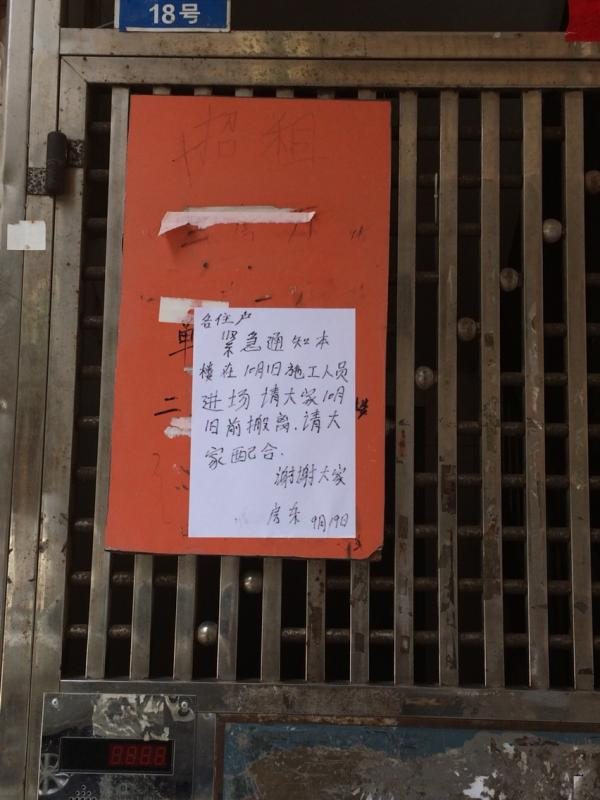 18号
招租
单
二
各住户
紧急通知本
楼在10月1日施工人员
进场 请大家10月
1日前搬离.请大
家配合.
谢谢大家
房东 9月19日
8888